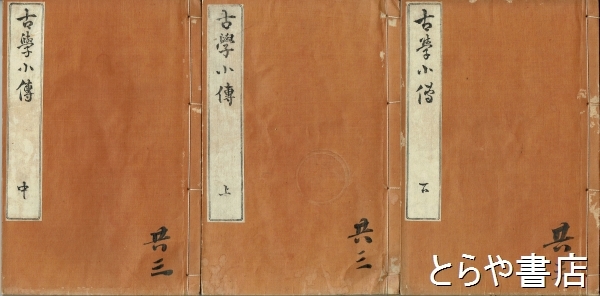 古學小傳
中
共三
古學小傳
上
共三
古学小傳
下
共
とらや書店